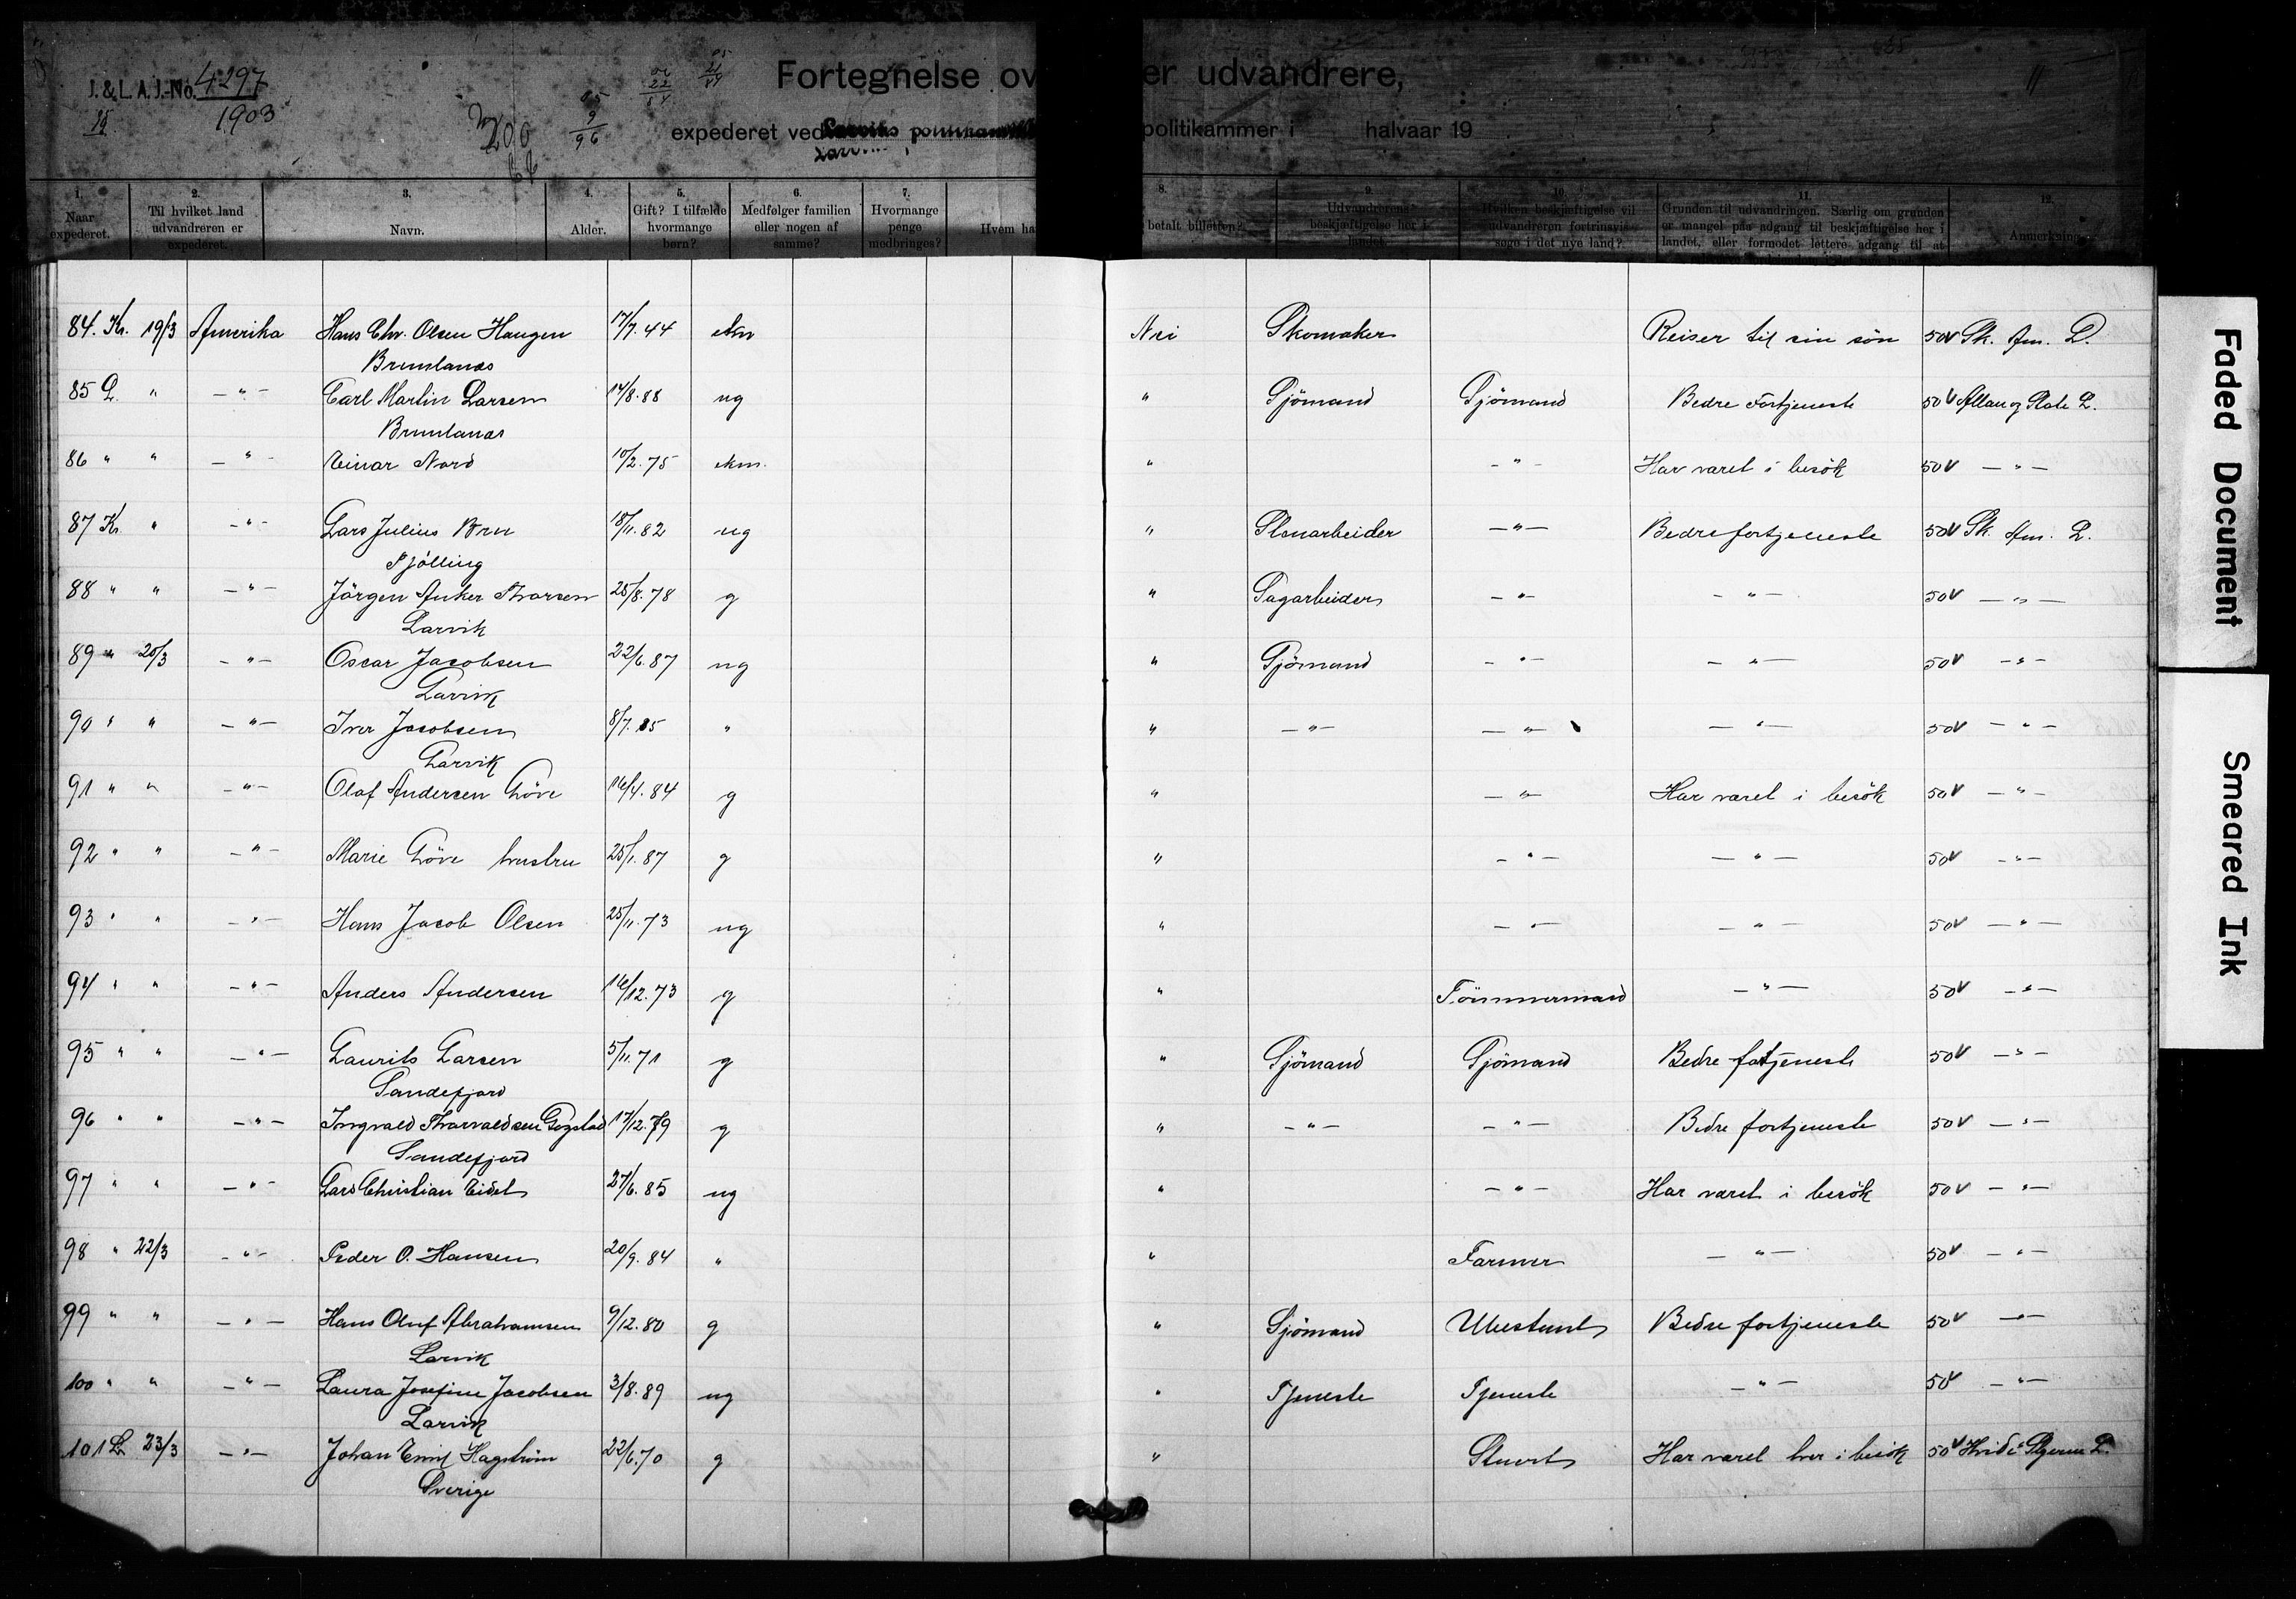 J. & L. A. J.-No. 4297
1903
Fortegnelse over udvandrere,
expederet ved Larviks politikammer i halvaar 19
1. Naar expederet.
2. Til hvilket land udvandreren er expederet.
3. Navn.
4. Alder.
5. Gift? I tilfælde hvormange børn?
6. Medfølger familien eller nogen af samme?
7. Hvormange penge medbringes?
8. Hvem har betalt billetten?
9. Udvandrerens beskjæftigelse her i landet.
10. Hvilken beskjæftigelse vil udvandreren fortrinsvis søge i det nye land?
11. Grunden til udvandringen. Særlig om grunden er mangel paa adgang til beskjæftigelse her i landet, eller formodet lettere adgang til at
12. Anmerkning
84. Kr. 19/3 Amerika Hans Chr. Olsen Haugen 17/7.44 ekm Nei Skomaker Reiser til sin sön 50 v Sk. Am. L.
Brunlanæs
85 L. " —"— Carl Martin Larsen 14/8.88 ug " Sjömand Sjömand Bedre Fortjeneste 50 v Allan og State L.
Brunlanæs
86 " " —"— Einar Nord 10/2.75 ekm. " —"— Har været i besök 50 v —"—
87 Kr. " —"— Lars Julius Bru 18/11.82 ug " Stenarbeider —"— Bedre fortjeneste 50 v Sk. Am. L.
Tjölling
88 " " —"— Jörgen Anker Thorsen 25/8.78 g " Sagarbeider —"— —"— 50 v —"—
Larvik
89 " 20/3 —"— Oscar Jacobsen 22/6.87 ug " Sjömand —"— —"— 50 v —"—
Larvik
90 " " —"— Iver Jacobsen 8/7.85 " " —"— —"— —"— 50 v —"—
Larvik
91 " " —"— Olaf Andersen Löve 16/4.84 g " —"— Har været i besök 50 v —"—
92 " " —"— Marie Löve hustru 25/1.87 g " —"— —"— 50 v —"—
93 " " —"— Hans Jacob Olsen 25/11.73 ug " —"— —"— 50 v —"—
94 " " —"— Anders Andersen 16/12.73 g " Tömmermand —"— 50 v —"—
95 " " —"— Laurits Larsen 5/11.71 g " Sjömand Sjömand Bedre fortjeneste 50 v —"—
Sandefjord
96 " " —"— Ingvald Thorvaldsen Gogstad 17/12.79 g " —"— —"— Bedre fortjeneste 50 v —"—
Sandefjord
97 " " —"— Lars Christian Eidet 27/6.85 ug " —"— Har været i besök 50 v —"—
98 " 22/3 —"— Peder O. Hansen 20/9.84 " " Farmer —"— 50 v —"—
99 " " —"— Hans Oluf Abrahamsen 9/12.80 g " Sjömand Ubestemt Bedre fortjeneste 50 v —"—
Larvik
100 " " —"— Laura Josefine Jacobsen 3/8.89 ug " Tjeneste Tjeneste —"— 50 v —"—
Larvik
101 L. 23/3 —"— Johan Emil Hagström 22/6.70 g " Stuert Har været her i besök 50 v Hvide Stjerne L.
Sverige
Faded Document
Smeared Ink